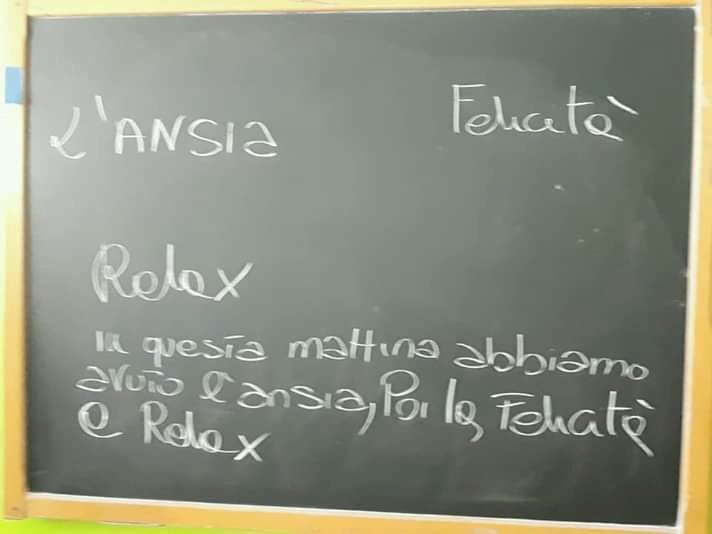 L'ANSIA
Felicità
Relax
in questa mattina abbiamo
avuto l'ansia, Poi la Felicità
e Relax